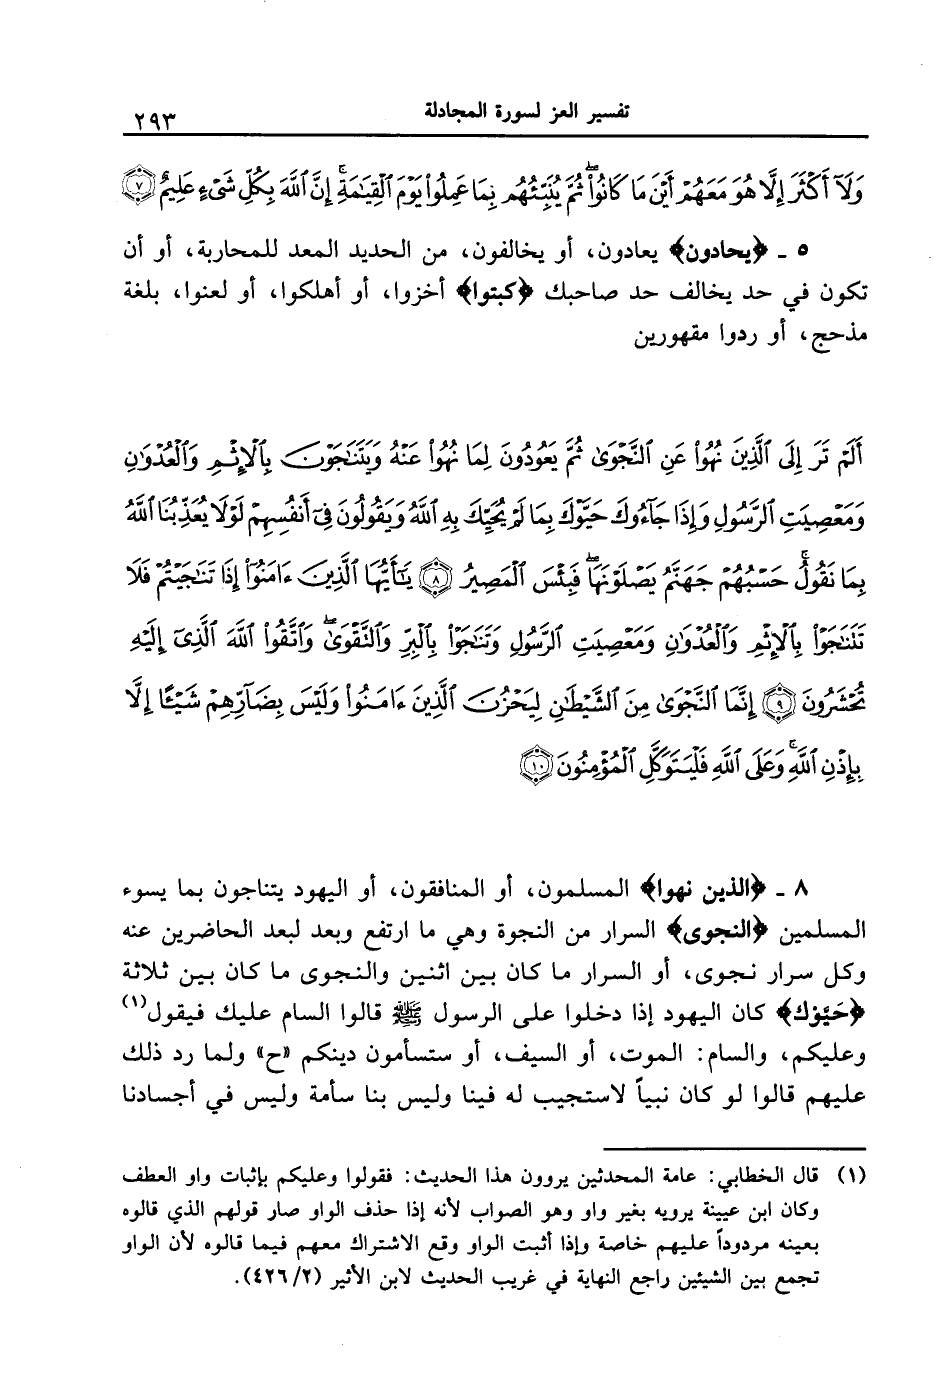 تفسير العز لسورة المجادلة ٢٩٣
وَلَآ أَكْثَرَ إِلَّا هُوَ مَعَهُمْ أَيْنَ مَا كَانُوا۟ ۖ ثُمَّ يُنَبِّئُهُم بِمَا عَمِلُوا۟ يَوْمَ ٱلْقِيَـٰمَةِ ۚ إِنَّ ٱللَّهَ بِكُلِّ شَىْءٍ عَلِيمٌ ٧
٥ ـ ﴿يحادون﴾ يعادون، أو يخالفون، من الحديد المعد للمحاربة، أو أن
تكون في حد يخالف حد صاحبك ﴿كبتوا﴾ أخزوا، أو أهلكوا، أو لعنوا، بلغة
مذحج، أو ردوا مقهورين
أَلَمْ تَرَ إِلَى ٱلَّذِينَ نُهُوا۟ عَنِ ٱلنَّجْوَىٰ ثُمَّ يَعُودُونَ لِمَا نُهُوا۟ عَنْهُ وَيَتَنَـٰجَوْنَ بِٱلْإِثْمِ وَٱلْعُدْوَٰنِ
وَمَعْصِيَتِ ٱلرَّسُولِ وَإِذَا جَآءُوكَ حَيَّوْكَ بِمَا لَمْ يُحَيِّكَ بِهِ ٱللَّهُ وَيَقُولُونَ فِىٓ أَنفُسِهِمْ لَوْلَا يُعَذِّبُنَا ٱللَّهُ
بِمَا نَقُولُ ۚ حَسْبُهُمْ جَهَنَّمُ يَصْلَوْنَهَا ۖ فَبِئْسَ ٱلْمَصِيرُ ٨ يَـٰٓأَيُّهَا ٱلَّذِينَ ءَامَنُوٓا۟ إِذَا تَنَـٰجَيْتُمْ فَلَا
تَتَنَـٰجَوْا۟ بِٱلْإِثْمِ وَٱلْعُدْوَٰنِ وَمَعْصِيَتِ ٱلرَّسُولِ وَتَنَـٰجَوْا۟ بِٱلْبِرِّ وَٱلتَّقْوَىٰ ۖ وَٱتَّقُوا۟ ٱللَّهَ ٱلَّذِىٓ إِلَيْهِ
تُحْشَرُونَ ٩ إِنَّمَا ٱلنَّجْوَىٰ مِنَ ٱلشَّيْطَـٰنِ لِيَحْزُنَ ٱلَّذِينَ ءَامَنُوا۟ وَلَيْسَ بِضَآرِّهِمْ شَيْـًٔا إِلَّا
بِإِذْنِ ٱللَّهِ ۚ وَعَلَى ٱللَّهِ فَلْيَتَوَكَّلِ ٱلْمُؤْمِنُونَ ١٠
٨ ـ ﴿الذين نهوا﴾ المسلمون، أو المنافقون، أو اليهود يتناجون بما يسوء
المسلمين ﴿النجوى﴾ السرار من النجوة وهي ما ارتفع وبعد لبعد الحاضرين عنه
وكل سرار نجوى، أو السرار ما كان بين اثنين والنجوى ما كان بين ثلاثة
﴿حَيَّوْك﴾ كان اليهود إذا دخلوا على الرسول ﷺ قالوا السام عليك فيقول(١)
وعليكم، والسام: الموت، أو السيف، أو ستسأمون دينكم «ح» ولما رد ذلك
عليهم قالوا لو كان نبياً لاستجيب له فينا وليس بنا سأمة وليس في أجسادنا
(١) قال الخطابي: عامة المحدثين يروون هذا الحديث: فقولوا وعليكم بإثبات واو العطف
وكان ابن عيينة يرويه بغير واو وهو الصواب لأنه إذا حذف الواو صار قولهم الذي قالوه
بعينه مردوداً عليهم خاصة وإذا أثبت الواو وقع الاشتراك معهم فيما قالوه لأن الواو
تجمع بين الشيئين راجع النهاية في غريب الحديث لابن الأثير (٤٢٦/٢).